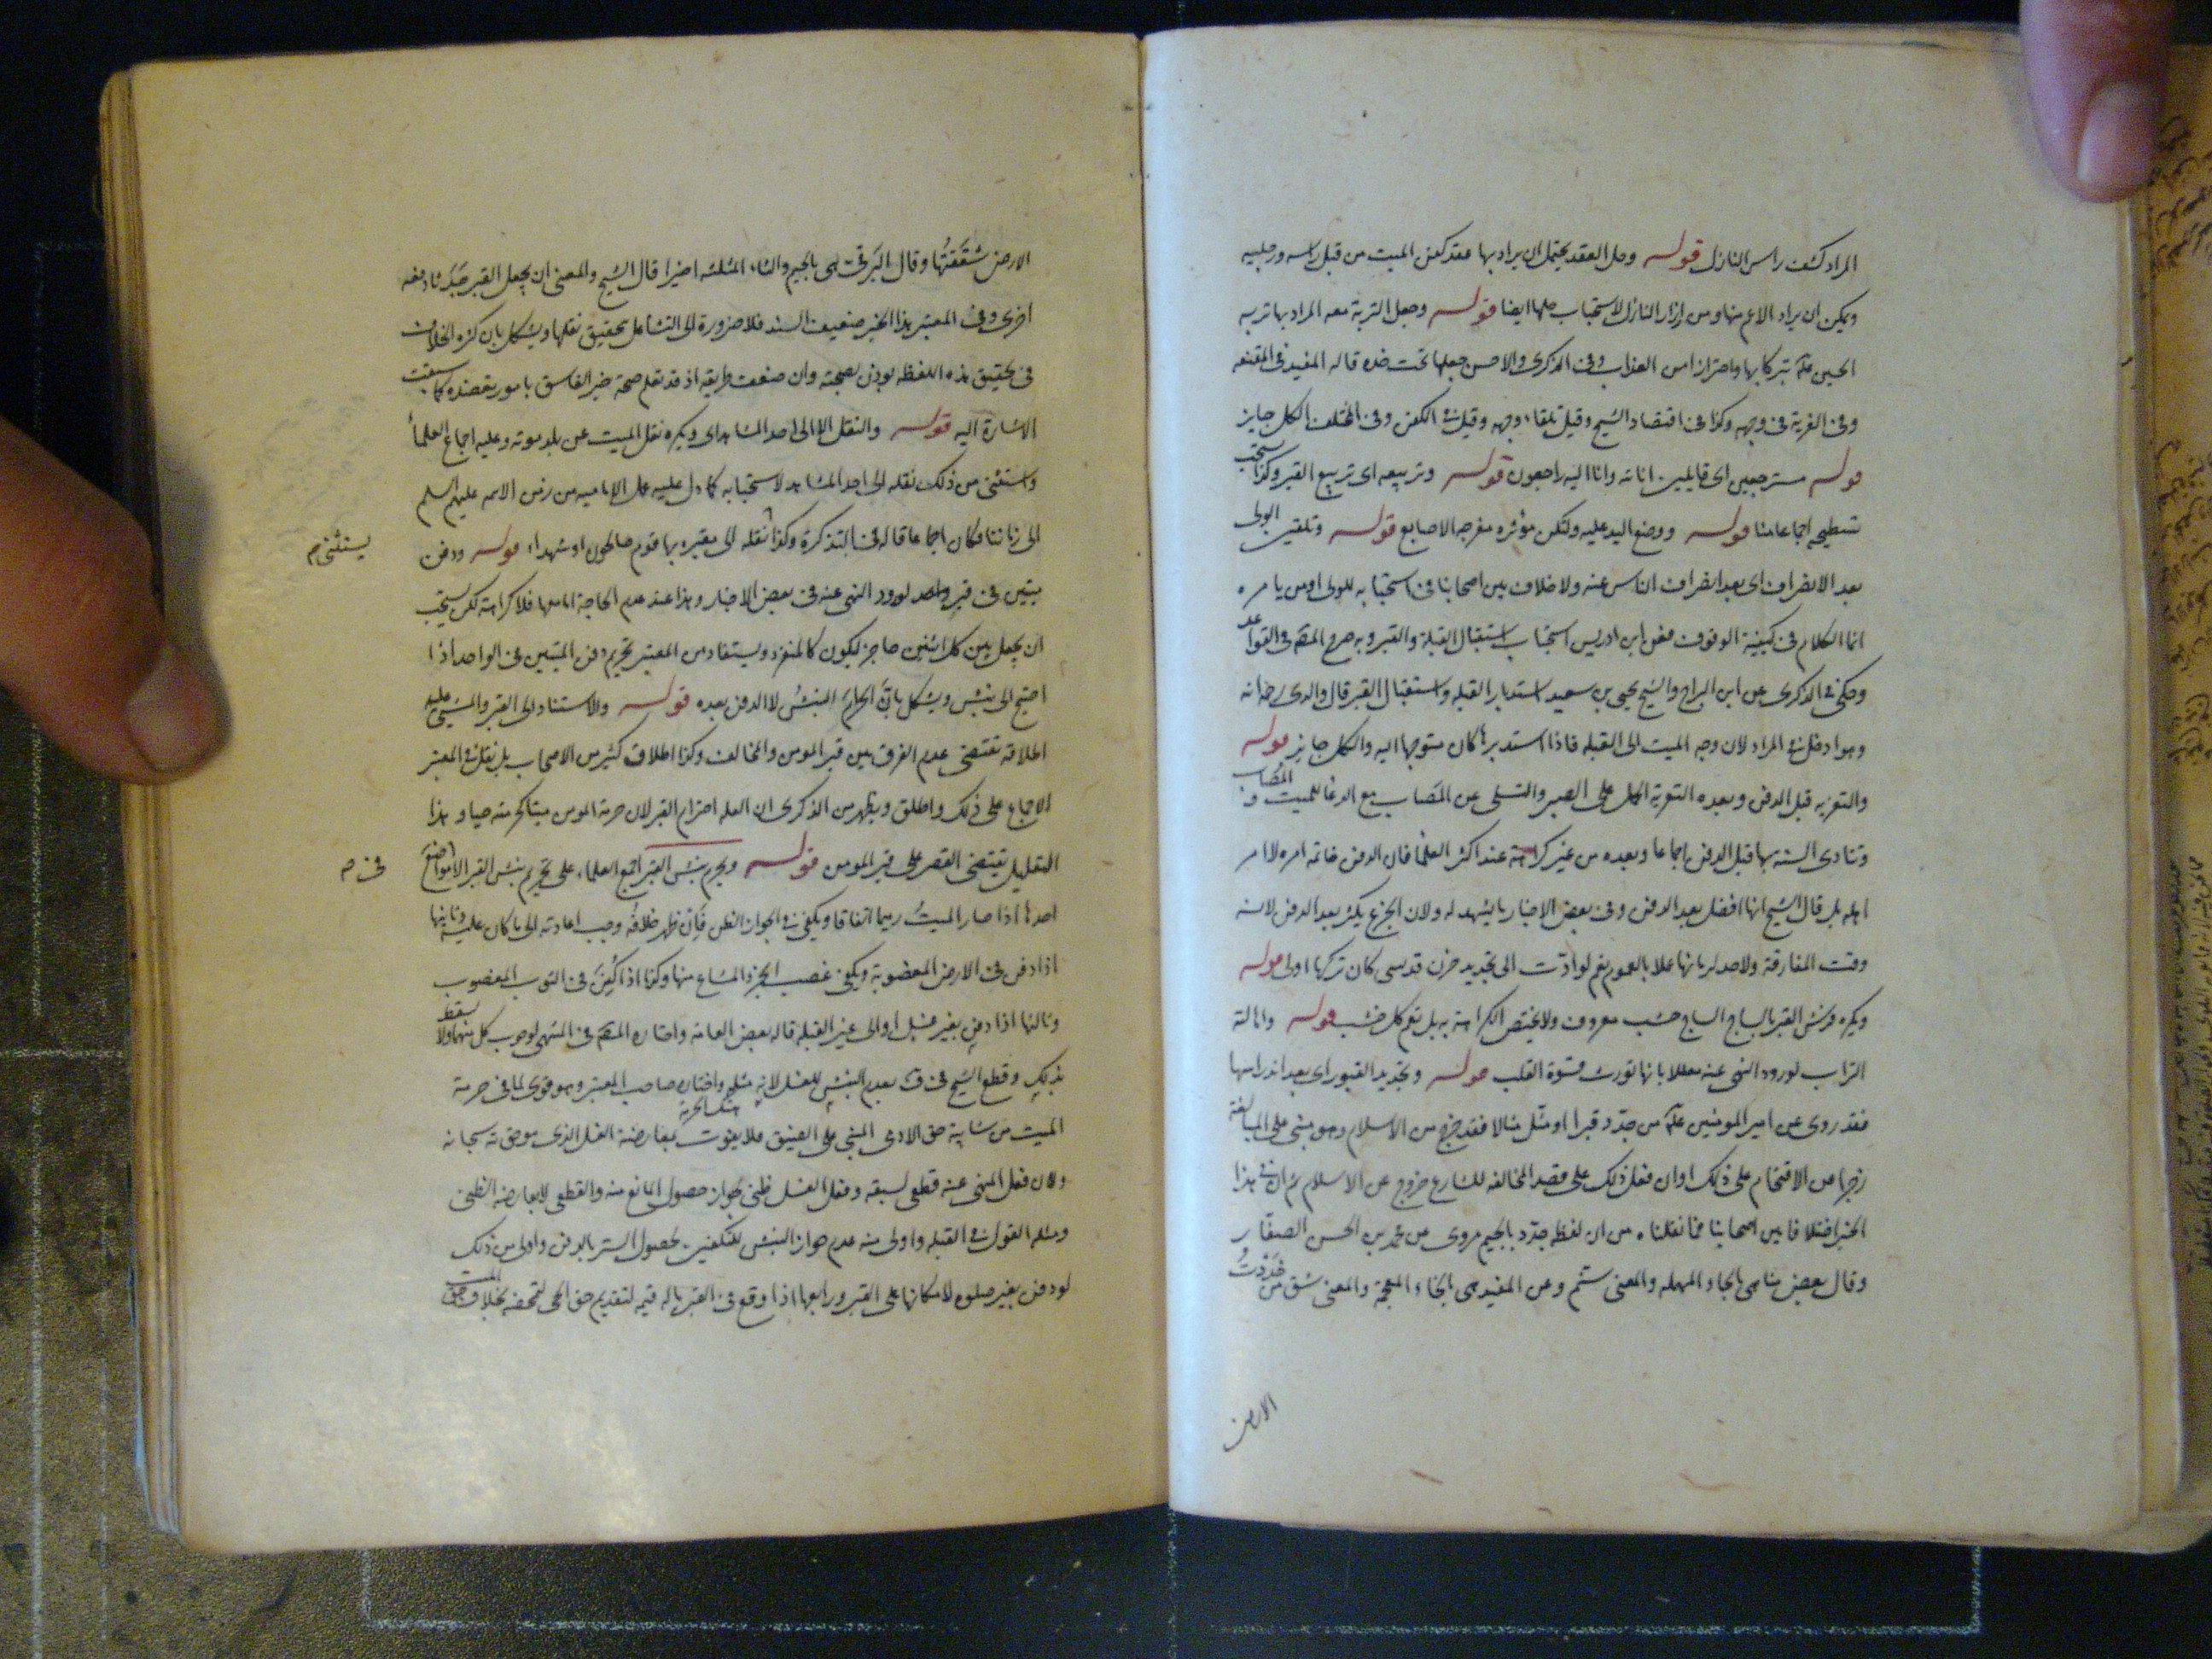 المراد كشف راس النازل قوله وحل العقد يحتمل ان يراد بها عقد كفن الميت من قبل راسه ورجليه
ويمكن ان يراد الاعم منها ومن ازرار النازل لاستحباب حلها ايضا قوله وجعل التربة معه المراد بها تربه
الحسين علم تبركا بها واحترازا من العذاب وفى الذكرى والاحسن جعلها تحت خده قاله المفيد فى المقنعه
وفى الغرية فى وجهه وكذا فى اقتصاد الشيخ وقيل تلقاء وجهه وقيل فى الكفن وفى المختلف الكل جايز
قوله مسترجعين اى قايلين انا لله وانا اليه راجعون قوله وتربيعه اى تربيع القبر وكذا يستحب
تسطيحه اجماعا منا قوله ووضع اليد عليه ولتكن مؤثره مفرجه الاصابع قوله وتلقين الولى
بعد الانصراف اى بعد انصراف الناس عنه ولا خلاف بين اصحابنا فى استحبابه للولى او من يامره
انما الكلام فى كيفية الوقوف فعن ابن ادريس استحباب استقبال القبلة والقبر وبه صرح المصه فى القواعد
وحكى فى الذكرى عن ابن البراج والشيخ يحيى بن سعيد استدبار القبله واستقبال القبر قال والدى رحمه الله
وهو ادخل فى المراد لان وجه الميت الى القبله فاذا استدبرها كان متوجها اليه والكل جايز قوله
والتعزيه قبل الدفن وبعده التعزية الحمل على الصبر والتسلى عن المصاب مع الدعا للميت والمصاب
وتتادى السنه بها قبل الدفن اجماعا وبعده من غير كراهة عند اكثر العلما فان الدفن خاتمه امره لا امر
اهله بل قال الشيخ انها افضل بعد الدفن وفى بعض الاخبار ما يشهد له ولان الجزع يكثر بعد الدفن لانه
وقت المفارقة ولا حد لزمانها عملا بالعموم نعم لو ادّت الى تجديد حزن قد نسى كان تركها اولى قوله
ويكره فرش القبر بالساج الساج خشب معروف ولا يختص الكراهة به بل تعم كل خشب قوله واهالة
التراب لورود النهى عنه معللا بانها تورث قسوة القلب قوله وتجديد القبور اى بعد اندراسها
فقد روى عن امير المومنين علم من جدّد قبرا او مثّل مثالا فقد خرج من الاسلام وهو مبنى على المبالغة
زجرا عن الاقتحام على ذلك او ان فعل ذلك على قصد المخالفه للشارع خروج عن الاسلام ثم ان فى هذا
الخبر اختلافا بين اصحابنا فما نقلناه من ان لفظه جدّد بالجيم مروى عن محمد بن الحسن الصفار
وقال بعض منا هى بالحاء المهمله والمعنى سنّم وعن المفيد هى بالخاء المعجمة والمعنى شق من خددتُ
الارض
الارض شققتُها وقال البرقى هى بالجيم والثاء المثلثه اخيرا قال الشيخ والمعنى ان يجعل القبر جَدَثا دفعه
اخرى وفى المعتبر هذا الخبر ضعيف السند فلا ضرورة الى التشاغل بتحقيق نقلها ويشكل بان كثره الخلاف
فى تحقيق هذه اللفظه يوذن بصحته وان ضعف طريقه اذ قد تعلم صحة خبر الفاسق بامور تعضده كما سبقت
الاشارة اليه قوله والنقل الا الى احد المشاهد اى ويكره نقل الميت عن بلد موته وعليه اجماع العلما
واستثنى من ذلك نقله الى احد المشاهد لاستحبابه كما دل عليه عمل الاماميه من زمن الائمه عليهم السلم
الى زماننا فكان اجماعا قاله فى التذكرة وكذا نقله الى مقبره بها قوم صالحون او شهداء قوله ودفن
يستثنى م
ميتين فى قبر واحد لورود النهى عنه فى بعض الاخبار وهذا عند عدم الحاجة اما معها فلا كراهة لكن يستحب
ان يجعل بين كل اثنين حاجز ليكون كالمنفرد ويستفاد من المعتبر تحريم دفن الميتين فى الواحد اذا
احتيج الى نبش ويشكل بانّ الحرامَ النبشُ لا الدفن بعده قوله والاستناد الى القبر والمشى عليه
اطلاقه تقتضى عدم الفرق بين قبر المومن والمخالف وكذا اطلاق كثير من الاصحاب بل نقل فى المعتبر
الاجماع على ذلك واطلق ويظهر من الذكرى ان العله احترام القبر لان حرمة المومن ميتا كحرمته حيا وهذا
التعليل يقتضى القصر على قبر المومن قوله ويحرم نبش القبر اجمع العلماء على تحريم نبش القبر الا مواضع
فى م
احدها اذا صار الميتُ رميما اتفاقا ويكفى فى الجواز الظن فان ظهر خلافُه وجب اعادته الى ما كان عليه وثانيها
اذا دفن فى الارض المغصوبة ويكفى غصب الجزء المشاع منها وكذا اذا كُفِنَ فى الثوب المغصوب
وثالثها اذا دفن بغير غسل او الى غير القبله قاله بعض العامة واختاره المصه فى المنتهى لوجوب كل منهما ولا يسقط
بذلك وقطع الشيخ فى ف بعدم النبش للغسل لانه مثله واختاره صاحب المعتبر وهو قوى لما فى حرمة
الميت من شايبة حق الادمى المبنى على الضيق فلا يفوت هتك الحرمة بمعارضة الغسل الذى هو حق لله سبحانه
ولان فعل المنهى عنه قطعى لسبقه وفعل الغسل ظنى لجواز حصول المانع منه والقطعى لا يعارضه الظنى
ومثله القول فى القبله واولى منه عدم جواز النبش للتكفين لحصول الستر بالدفن واولى من ذلك
لو دفن بغير صلوه لامكانها على القبر ورابعها اذا وقع فى القبر ماله قيمه لتقديم حق الحى لتمحضه بخلاف حق الميت